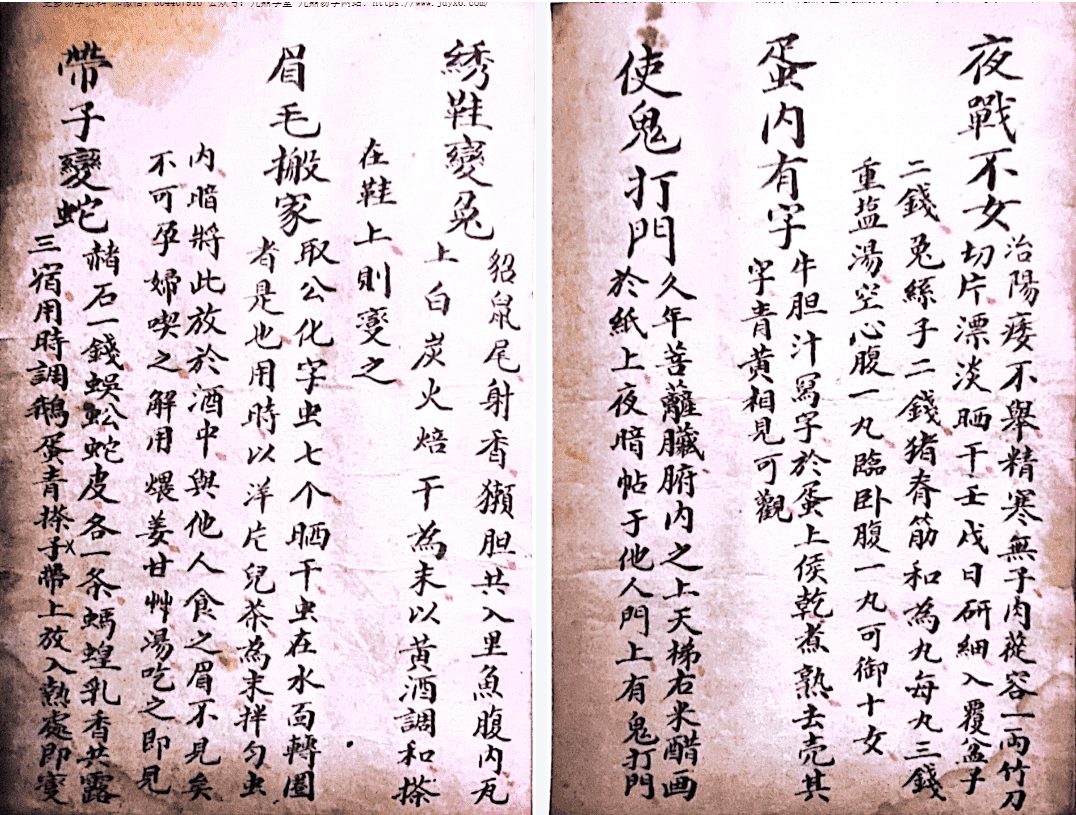 夜戰不女
治陽痿不舉精寒無子肉蓯容一兩竹刀
切片漂淡晒干壬戌日研細入覆盆子
二錢兔絲子二錢猪脊筋和為丸每丸三錢
重盐湯空心腹一丸臨卧腹一丸可御十女
蛋内有字
牛胆汁寫字於蛋上候乾煮熟去壳其
字青黃相見可觀
使鬼打門
久年菩薩臟腑内之上天梯右米醋画
於紙上夜暗帖于他人門上有鬼打門
綉鞋變兔
貂鼠尾射香獺胆共入里魚腹内瓦
上白炭火焙干為末以黃酒調和搽
在鞋上則变之
眉毛搬家
取公化字虫七个晒干虫在水面轉圈
者是也用時以洋片兒茶為末拌匀虫
内暗將此放於酒中與他人食之眉不見矣
不可孕婦喫之解用煨姜甘艸湯吃之即見
帶子變蛇
赭石一錢蜈蚣蛇皮各一条螞蝗乳香共露
三宿用時調鵝蛋青搽子帶上放入熱處即變